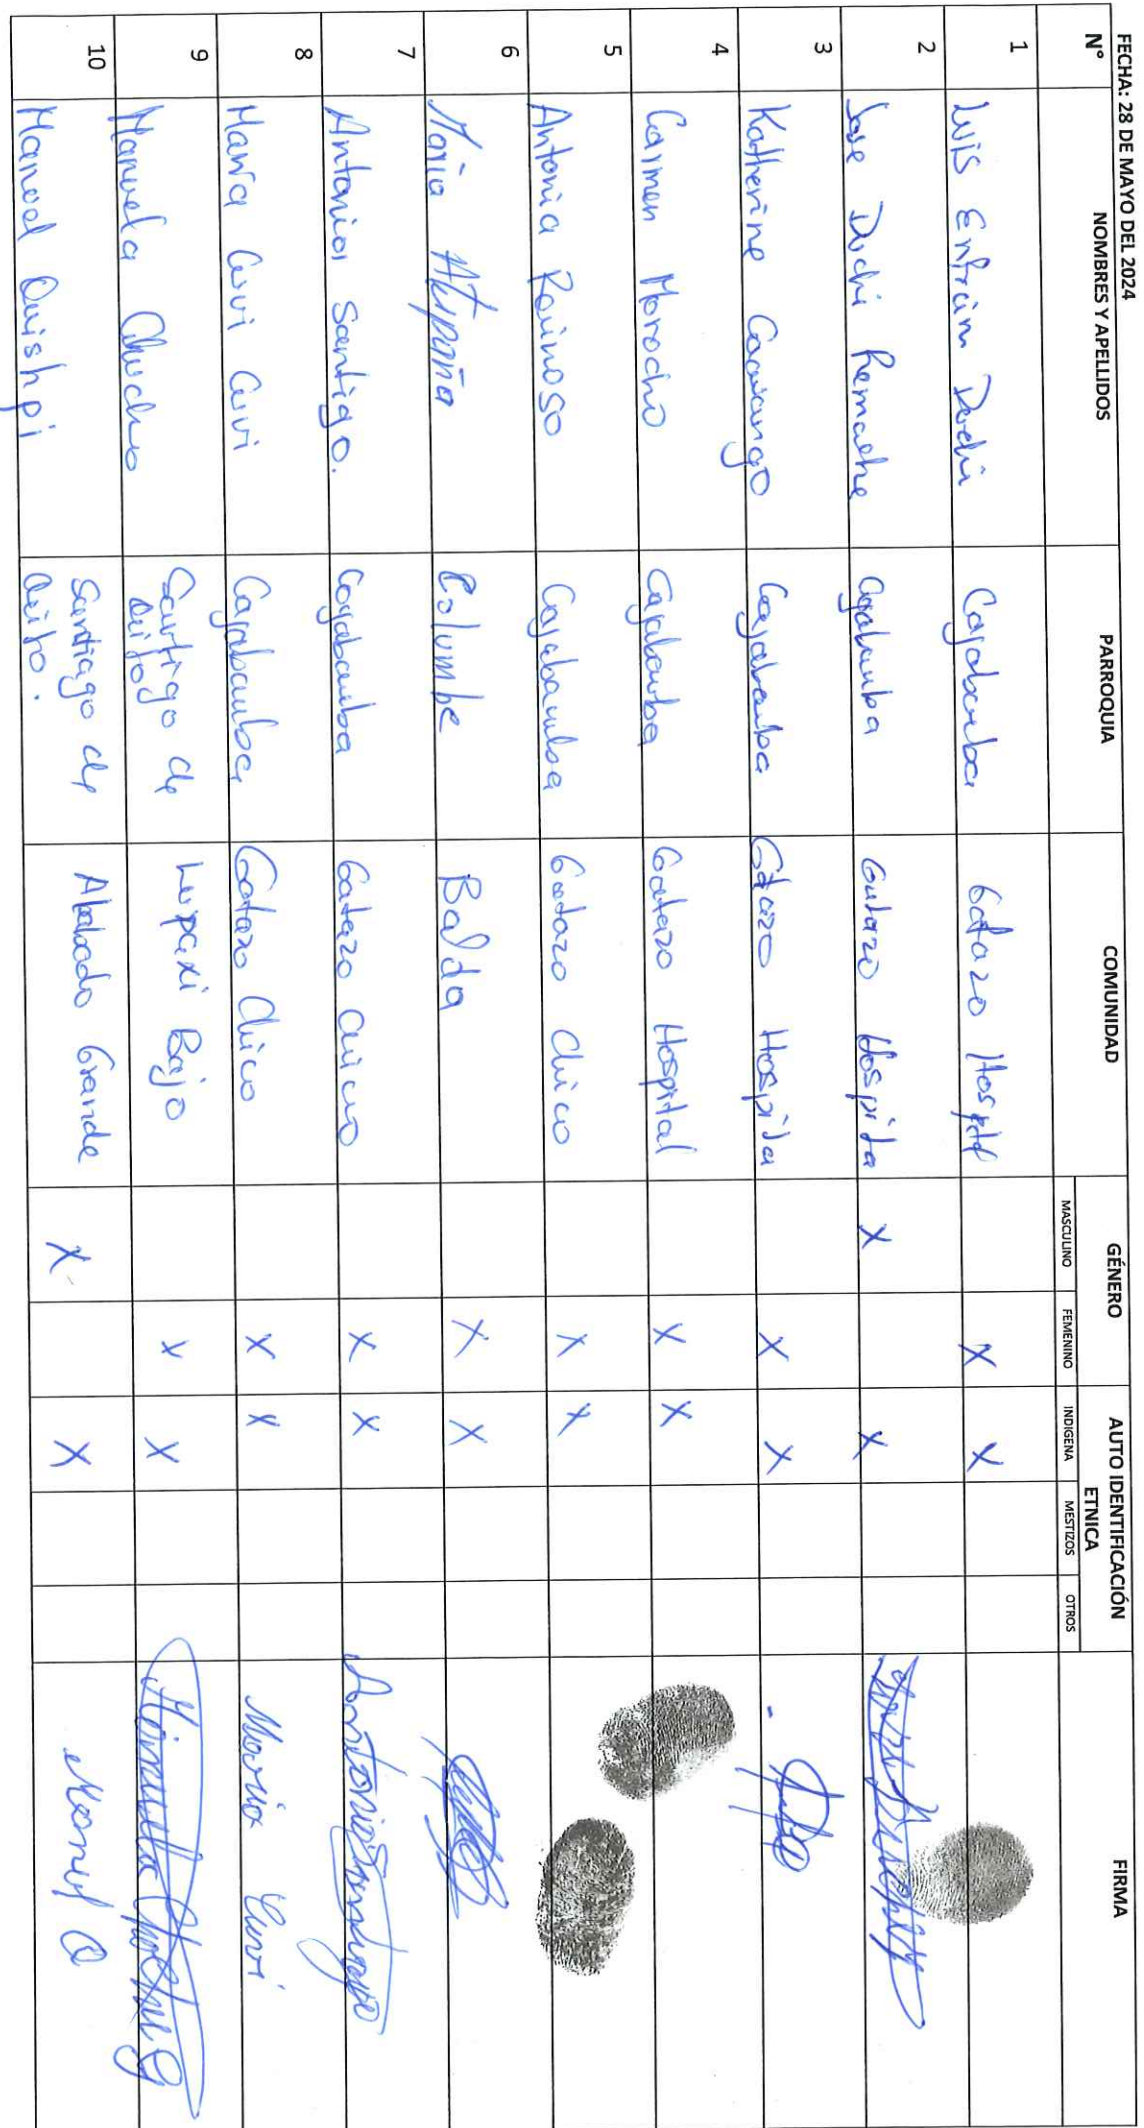 FECHA: 28 DE MAYO DEL 2024
N° NOMBRES Y APELLIDOS PARROQUIA COMUNIDAD GÉNERO AUTO IDENTIFICACIÓN ETNICA FIRMA
MASCULINO FEMENINO INDIGENA MESTIZOS OTROS
1 Luis Enfrain Duchi Cajabamba Gatazo Hospital X X
2 Jose Duchi Remache Cajabamba Gatazo Hospita X X
3 Katherine Guaranga Cajabamba Gatazo Hospita X X
4 Carmen Morocho Cajabamba Gatazo Hospital X X
5 Antonia Reinoso Cajabamba Gatazo Chico X X
6 Maria Columbe Balda X X
7 Antonia Santigo. Cajabamba Gatazo Chico X X Antonia Santiago
8 Maria Curi Curi Cajabamba Gatazo Chico X X Maria Curi
9 Manuela Chucho Santigo de Quito Lupaxi Bajo X X
10 Manuel Quishpi Santiago de Quito. Ababado Grande X X Manuel Q